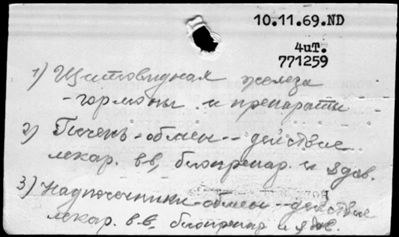 10.11.69.ND
4ит.
771259
1) Щитовидная железа
- гормоны и препараты
2) Печень - обмен - действие
лекар. вв, биопрепар. и ядов.
3) Надпочечники - обмен - действие
лекар. в-в, биопрепар и ядов.